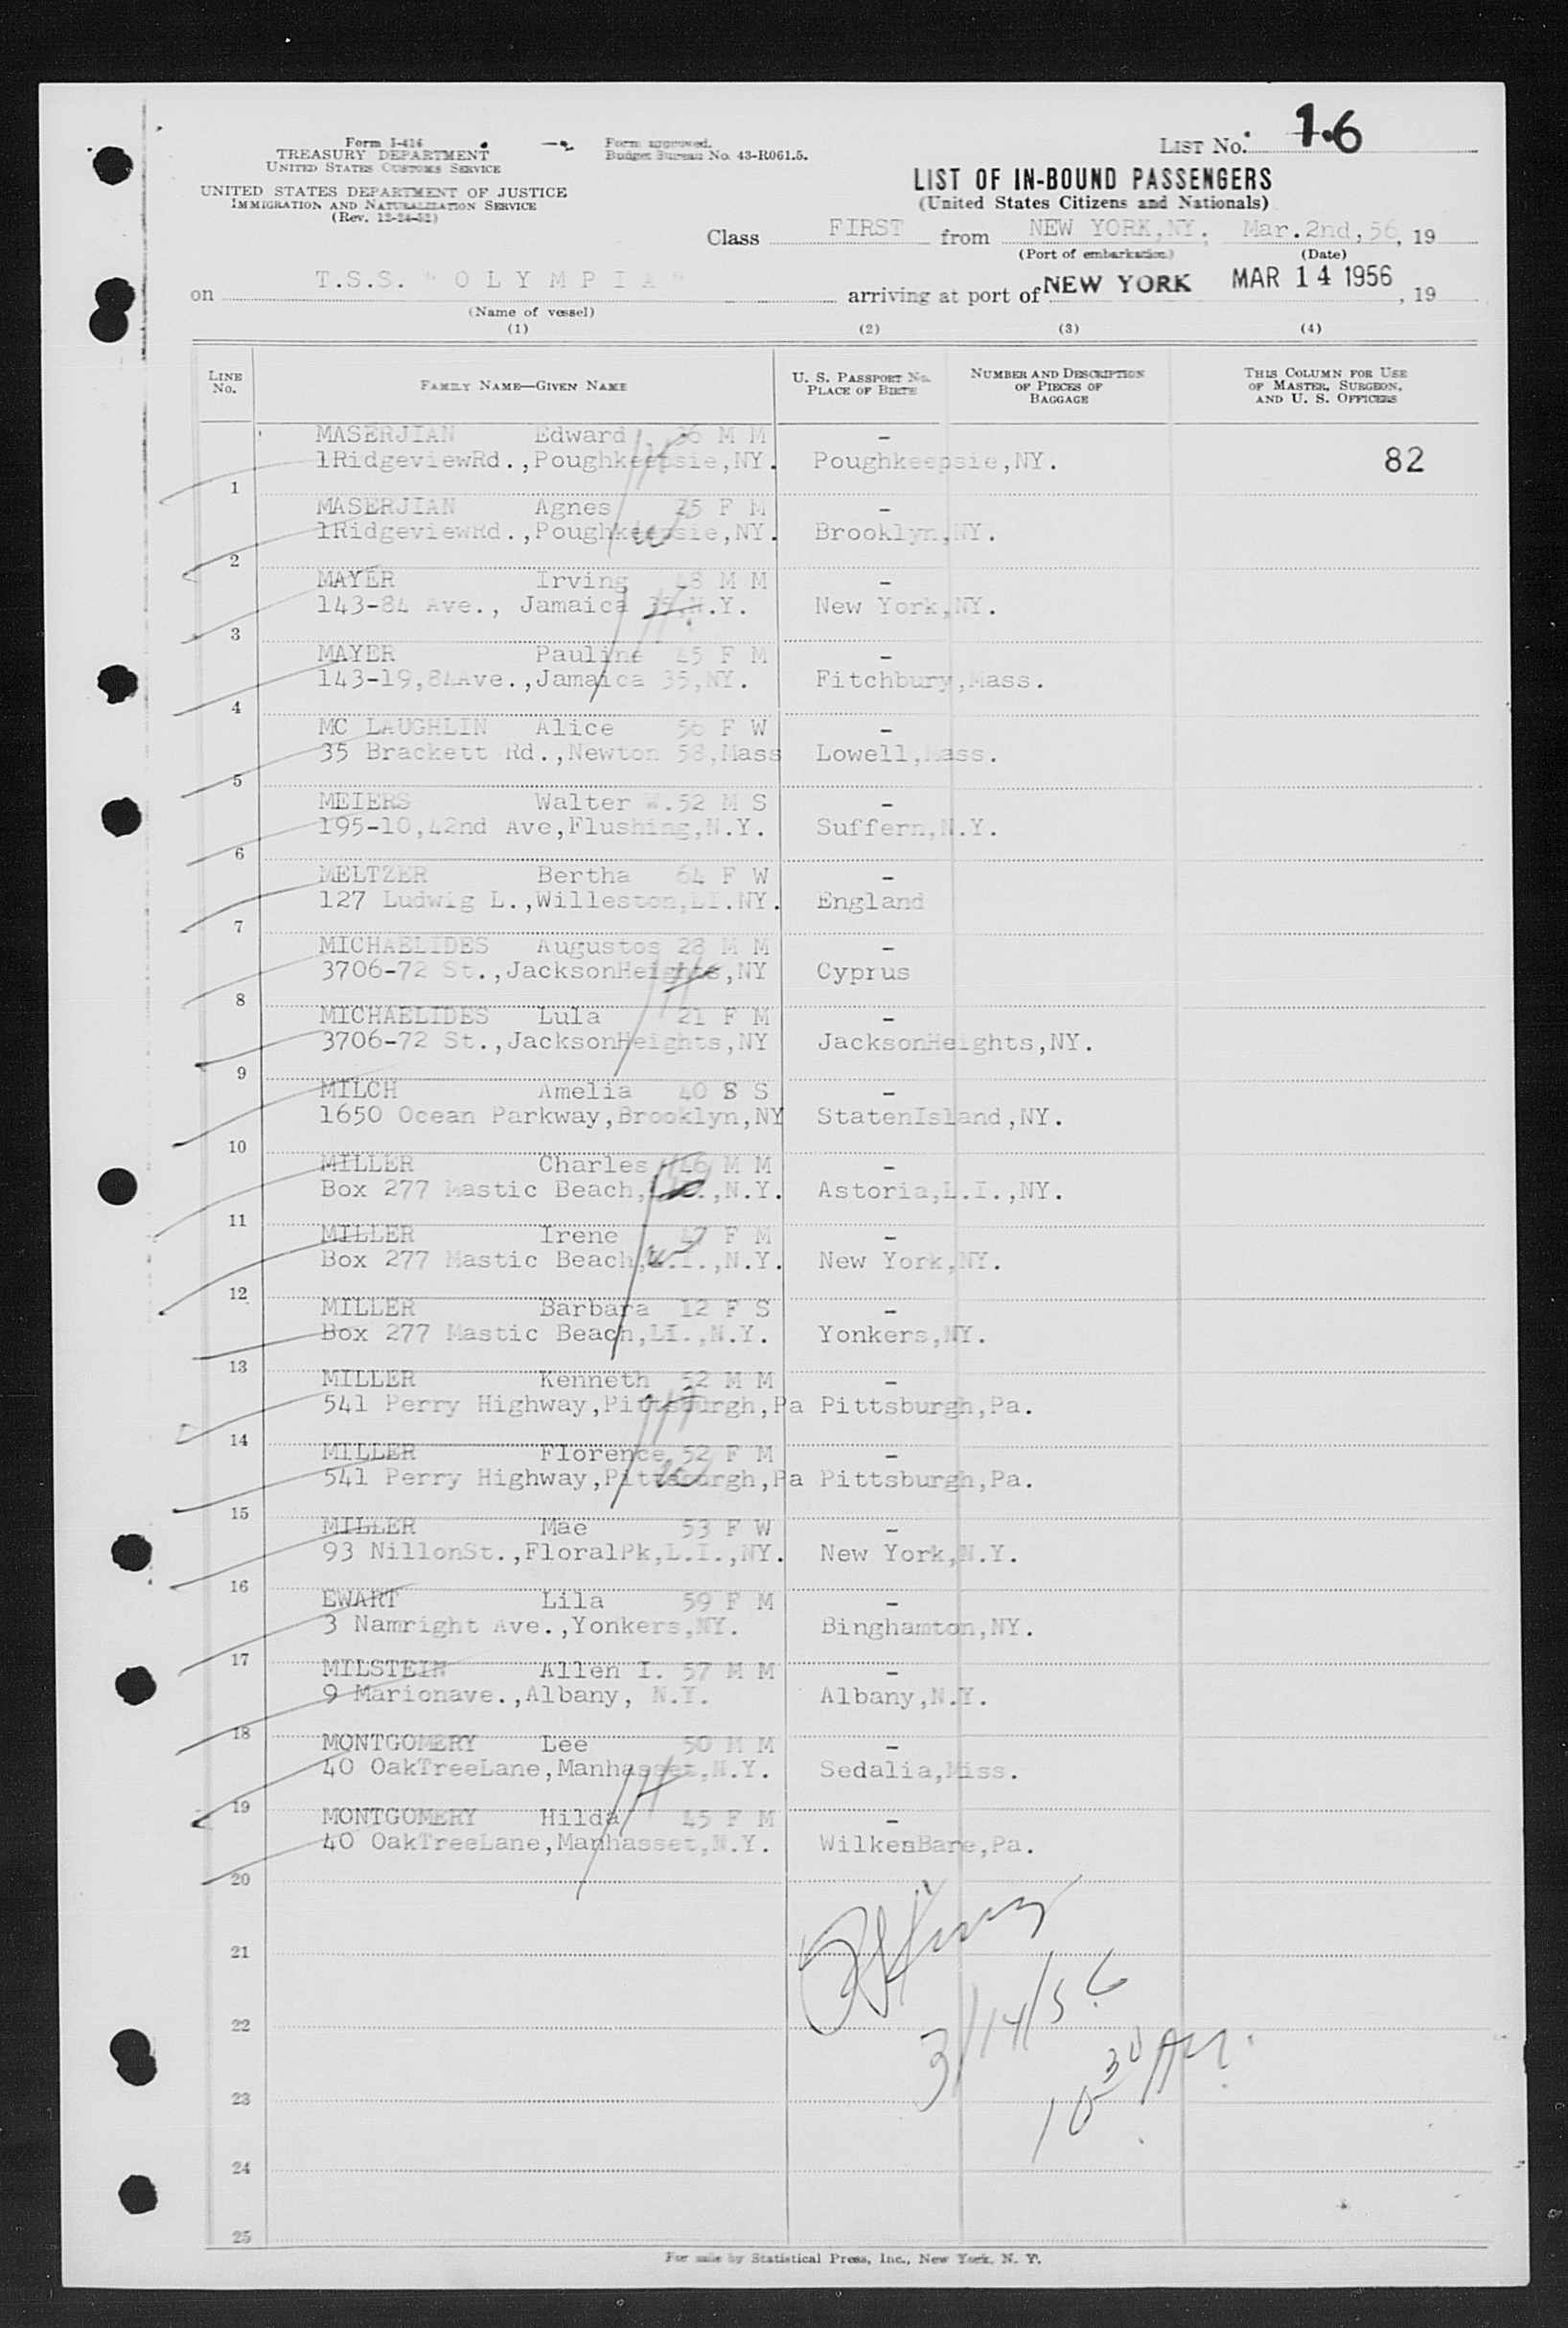 Form I-416
TREASURY DEPARTMENT
UNITED STATES CUSTOMS SERVICE
UNITED STATES DEPARTMENT OF JUSTICE
IMMIGRATION AND NATURALIZATION SERVICE
(Rev. 12-24-52)
Form approved.
Budget Bureau No. 43-R061.5.
LIST No. 16
LIST OF IN-BOUND PASSENGERS
(United States Citizens and Nationals)
Class FIRST from NEW YORK,NY. Mar.2nd,56, 19
(Port of embarkation) (Date)
on T.S.S. "OLYMPIA" arriving at port of NEW YORK MAR 14 1956, 19
(Name of vessel)
(1) (2) (3) (4)
LINE No. FAMILY NAME—GIVEN NAME U. S. PASSPORT No. PLACE OF BIRTH NUMBER AND DESCRIPTION OF PIECES OF BAGGAGE THIS COLUMN FOR USE OF MASTER, SURGEON, AND U. S. OFFICERS
MASERJIAN Edward 36 M M -
1RidgeviewRd.,Poughkeepsie,NY. Poughkeepsie,NY. 82
1
MASERJIAN Agnes 25 F M -
1RidgeviewRd.,Poughkeepsie,NY. Brooklyn,NY.
2
MAYER Irving 48 M M -
143-84 Ave., Jamaica 35,N.Y. New York,NY.
3
MAYER Pauline 45 F M -
143-19,84Ave.,Jamaica 35,NY. Fitchbury,Mass.
4
MC LAUGHLIN Alice 56 F W -
35 Brackett Rd.,Newton 58,Mass Lowell,Mass.
5
MEIERS Walter W.52 M S -
195-10,42nd Ave,Flushing,N.Y. Suffern,N.Y.
6
MELTZER Bertha 64 F W -
127 Ludwig L.,Willeston,LI.NY. England
7
MICHAELIDES Augustos 28 M M -
3706-72 St.,JacksonHeights,NY Cyprus
8
MICHAELIDES Lula 21 F M -
3706-72 St.,JacksonHeights,NY JacksonHeights,NY.
9
MILCH Amelia 40 S S -
1650 Ocean Parkway,Brooklyn,NY StatenIsland,NY.
10
MILLER Charles 46 M M -
Box 277 Mastic Beach,L.I.,N.Y. Astoria,L.I.,NY.
11
MILLER Irene 47 F M -
Box 277 Mastic Beach,L.I.,N.Y. New York,NY.
12
MILLER Barbara 12 F S -
Box 277 Mastic Beach,LI.,N.Y. Yonkers,NY.
13
MILLER Kenneth 52 M M -
541 Perry Highway,Pittsburgh,Pa Pittsburgh,Pa.
14
MILLER Florence 52 F M -
541 Perry Highway,Pittsburgh,Pa Pittsburgh,Pa.
15
MILLER Mae 53 F W -
93 NillonSt.,FloralPk,L.I.,NY. New York,N.Y.
16
EWART Lila 59 F M -
3 Namright Ave.,Yonkers,NY. Binghamton,NY.
17
MILSTEIN Allen I. 57 M M -
9 Marionave.,Albany, N.Y. Albany,N.Y.
18
MONTGOMERY Lee 50 M M -
40 OakTreeLane,Manhasset,N.Y. Sedalia,Miss.
19
MONTGOMERY Hilda 45 F M -
40 OakTreeLane,Manhasset,N.Y. WilkesBare,Pa.
20
21
3/14/56
22
10 30 AM.
23
24
25
For sale by Statistical Press, Inc., New York, N. Y.